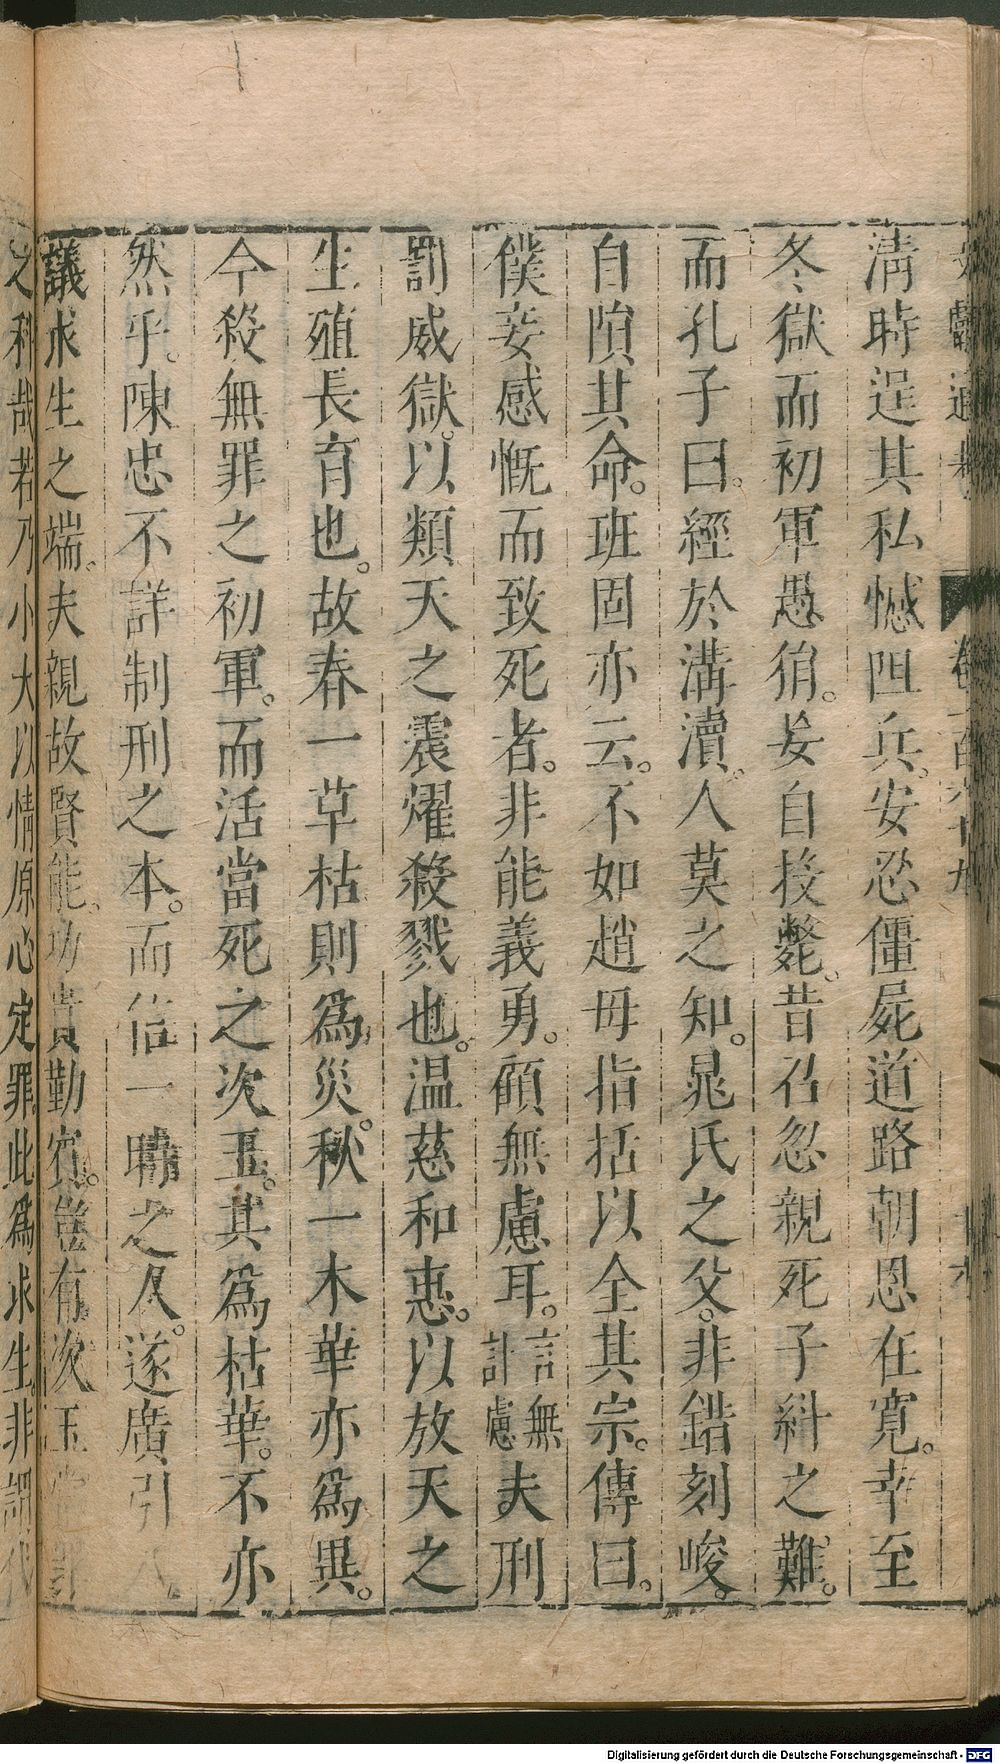 清時逞其私憾阻兵安忍僵屍道路朝恩在寛幸至
冬獄而初軍愚狷妄自投斃昔召忽親死子糾之難
而孔子曰經於溝瀆人莫之知晁氏之父非錯刻峻
自隕其命班固亦云不如趙母指括以全其宗傳曰
僕妾感慨而致死者非能義勇顧無慮耳言無計慮夫刑
罰威獄以類天之震燿殺戮也温慈和惠以放天之
生殖長育也故春一草枯則爲災秋一木華亦爲異
今殺無罪之初軍而活當死之次玉其爲枯華不亦
然乎陳忠不詳制刑之本而信一時之仁遂廣引八
議求生之端夫親故賢能功貴勤賓豈有次玉
之科哉若乃小大以情原心定罪此爲求生非謂代
Digitalisierung gefördert durch die Deutsche Forschungsgemeinschaft - DFG